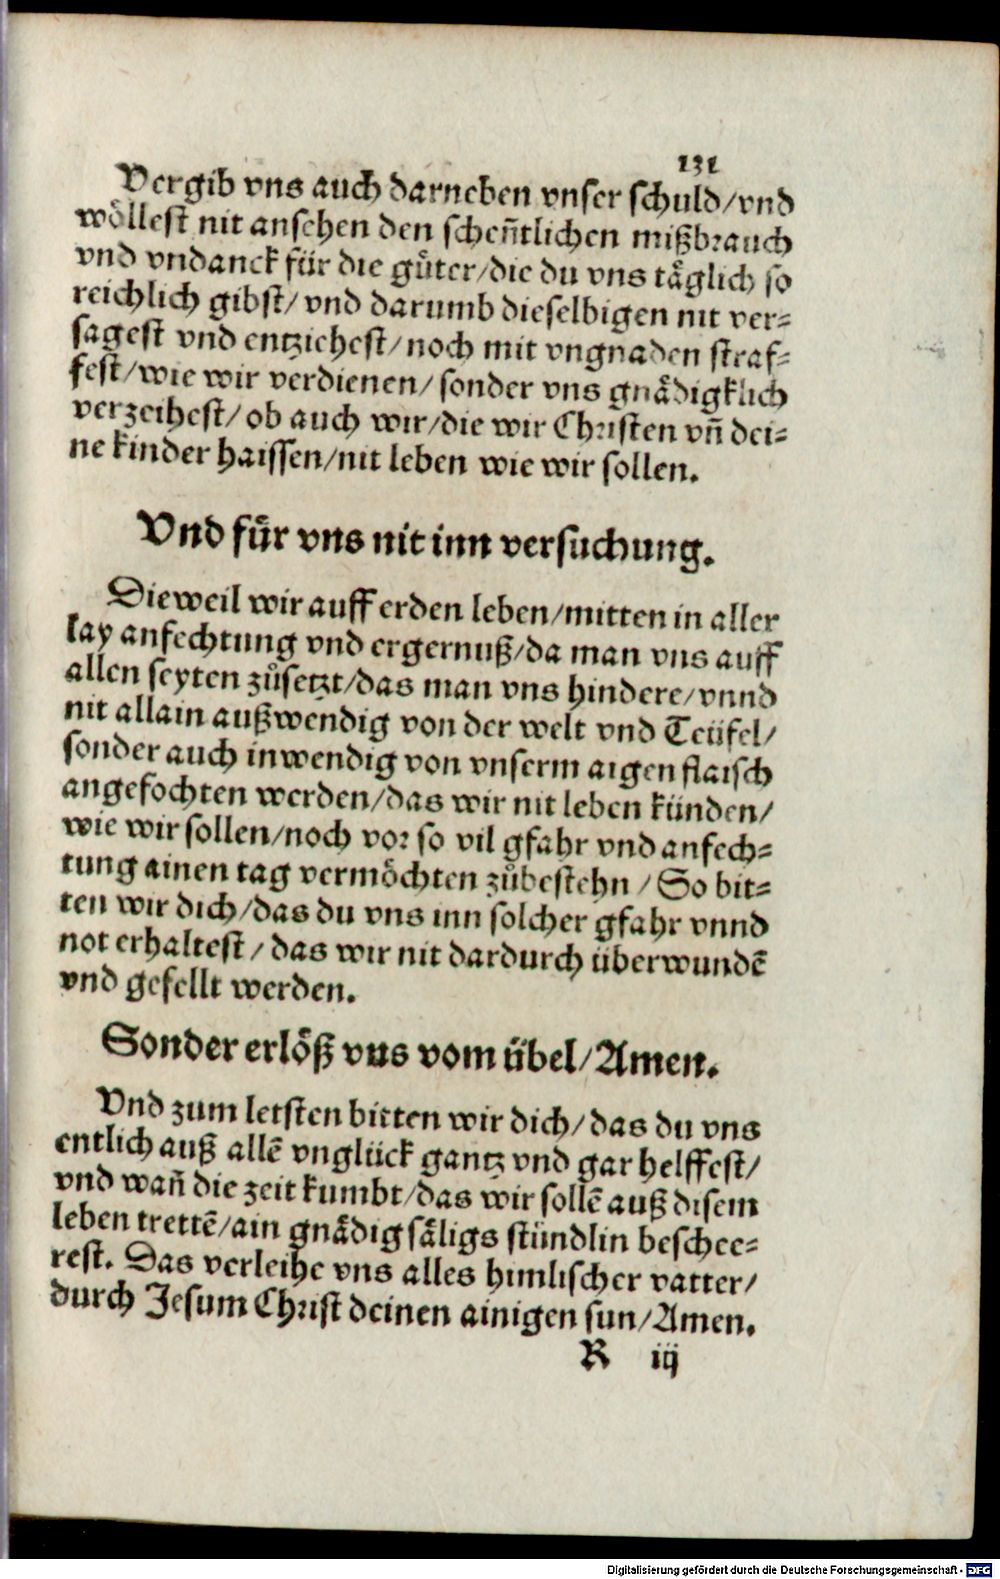 131
Vergib vns auch darneben vnser schuld/vnd
wöllest nit ansehen den scheñtlichen mißbrauch
vnd vndanck für die güter/die du vns täglich so
reichlich gibst/ vnd darumb dieselbigen nit ver=
sagest vnd entziehest/ noch mit vngnaden straf=
fest/wie wir verdienen/ sonder vns gnädigklich
verzeihest/ ob auch wir/die wir Christen vñ dei=
ne kinder haissen/nit leben wie wir sollen.
Vnd für vns nit inn versuchung.
Dieweil wir auff erden leben/mitten in aller
lay anfechtung vnd ergernuß/da man vns auff
allen seyten zůsetzt/das man vns hindere/vnnd
nit allain außwendig von der welt vnd Teüfel/
sonder auch inwendig von vnserm aigen flaisch
angefochten werden/das wir nit leben künden/
wie wir sollen/noch vor so vil gfahr vnd anfech=
tung ainen tag vermöchten zůbestehn / So bit=
ten wir dich/das du vns inn solcher gfahr vnnd
not erhaltest / das wir nit dardurch überwundē
vnd gefellt werden.
Sonder erlöß vns vom übel/Amen.
Vnd zum letsten bitten wir dich/ das du vns
entlich auß allē vnglück gantz vnd gar helffest/
vnd wañ die zeit kumbt/das wir sollē auß disem
leben trettē/ain gnädig säligs stündlin beschee=
rest. Das verleihe vns alles himlischer vatter/
durch Jesum Christ deinen ainigen sun/Amen.
R iij
Digitalisierung gefördert durch die Deutsche Forschungsgemeinschaft - DFG